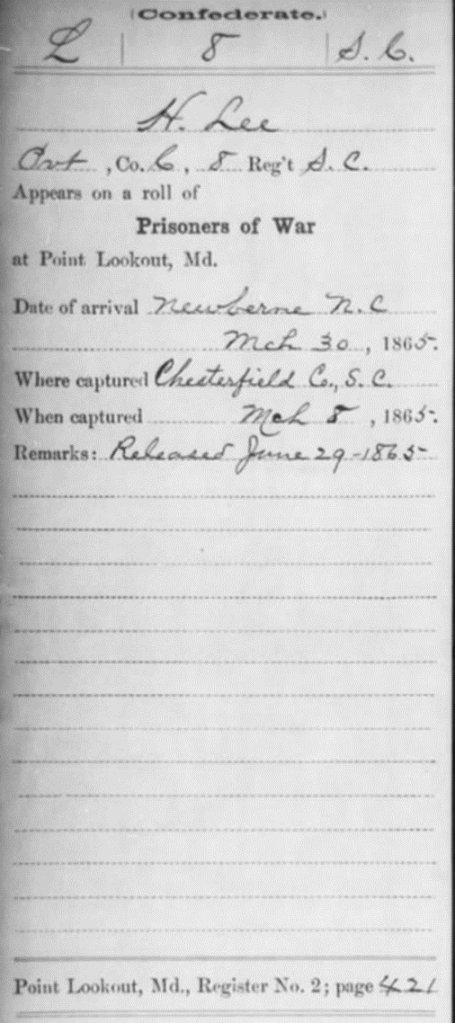 (Confederate.)
L | 8 | S. C.
H. Lee
Pvt, Co. C, 8 Reg't S. C.
Appears on a roll of
Prisoners of War
at Point Lookout, Md.
Date of arrival Newberne N. C
Mch 30, 1865.
Where captured Chesterfield Co., S. C.
When captured Mch 8, 1865.
Remarks: Released June 29-1865
Point Lookout, Md., Register No. 2; page 421